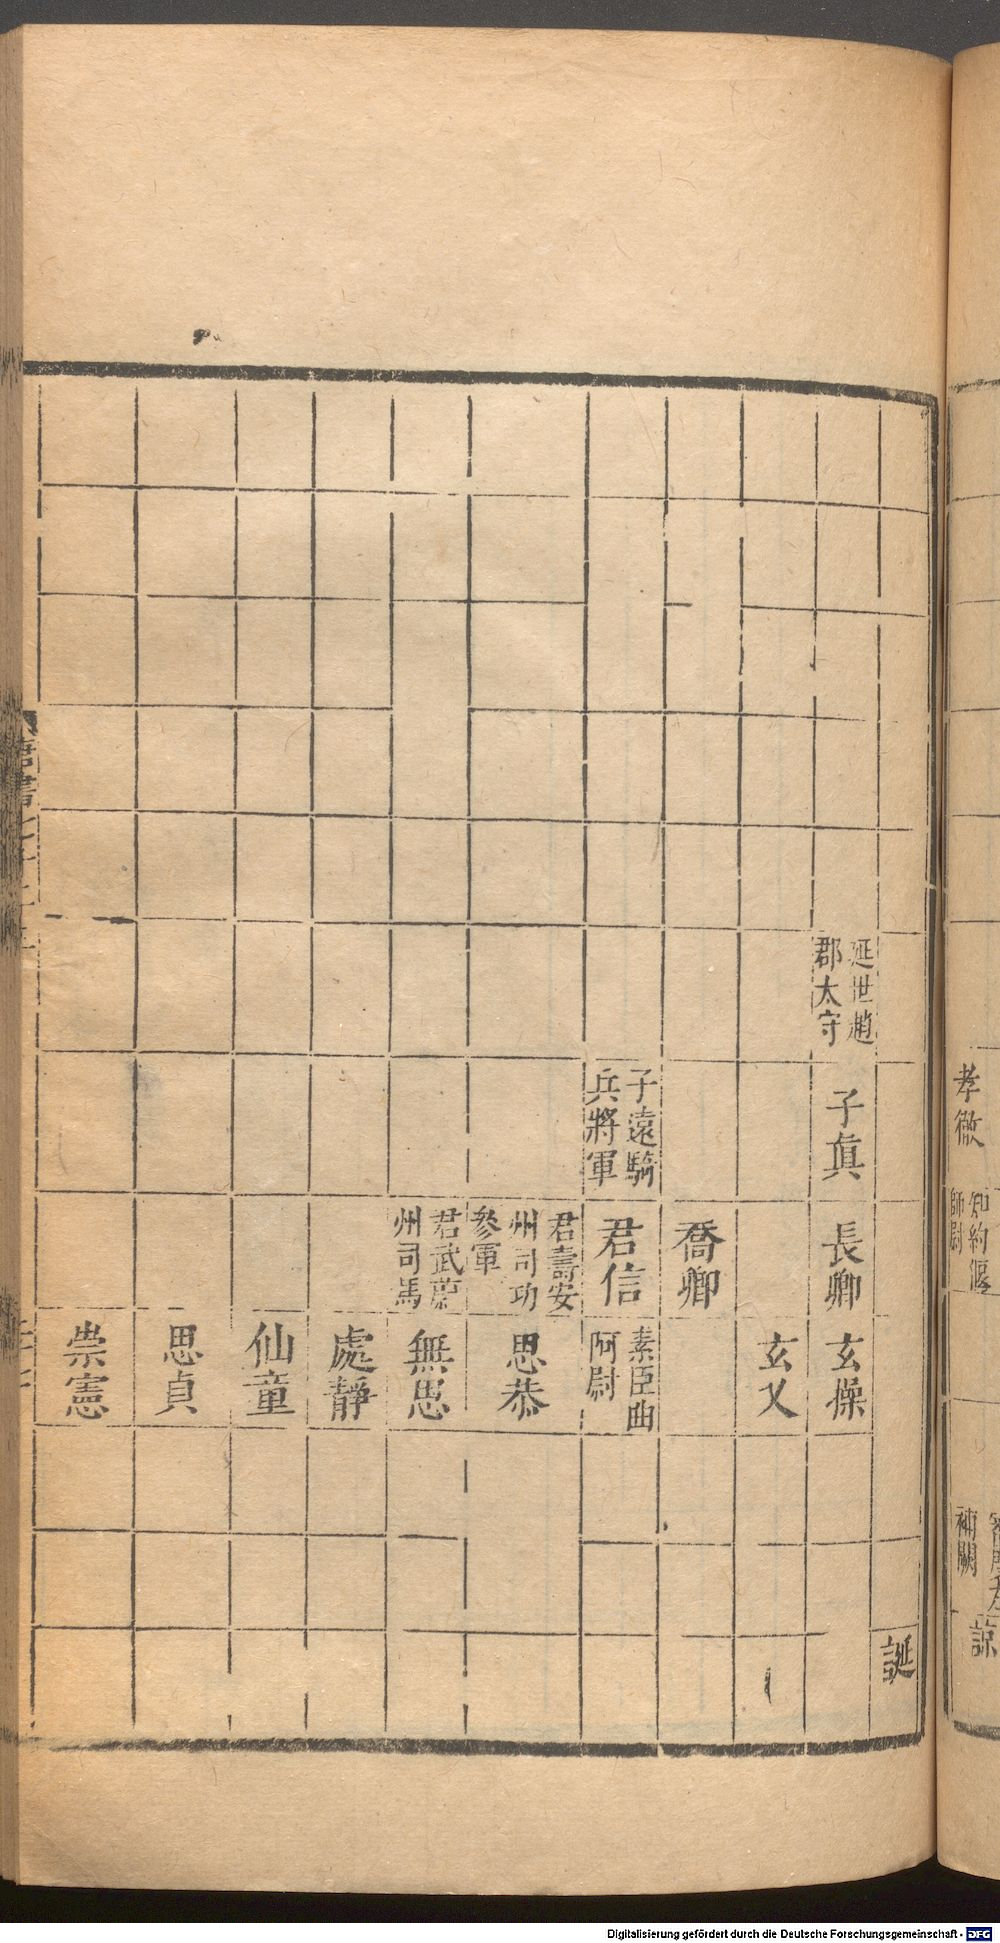 誕
延世趙
郡太守
子眞
長卿
玄操
玄乂
喬卿
子遠騎
兵將軍
君信
素臣曲
阿尉
君壽安
州司功
參軍
思恭
君武
州司馬
無思
處靜
仙童
思貞
崇憲
孝徹
知約偃
師尉
補闕
諒
Digitalisierung gefördert durch die Deutsche Forschungsgemeinschaft - DFG